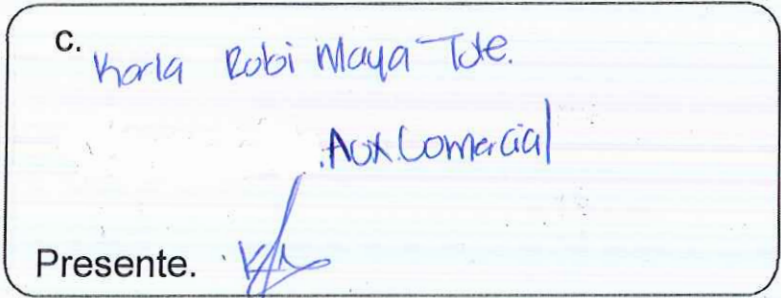 c. Karla Robi Maya Tote.
Aux Comercial
Presente.